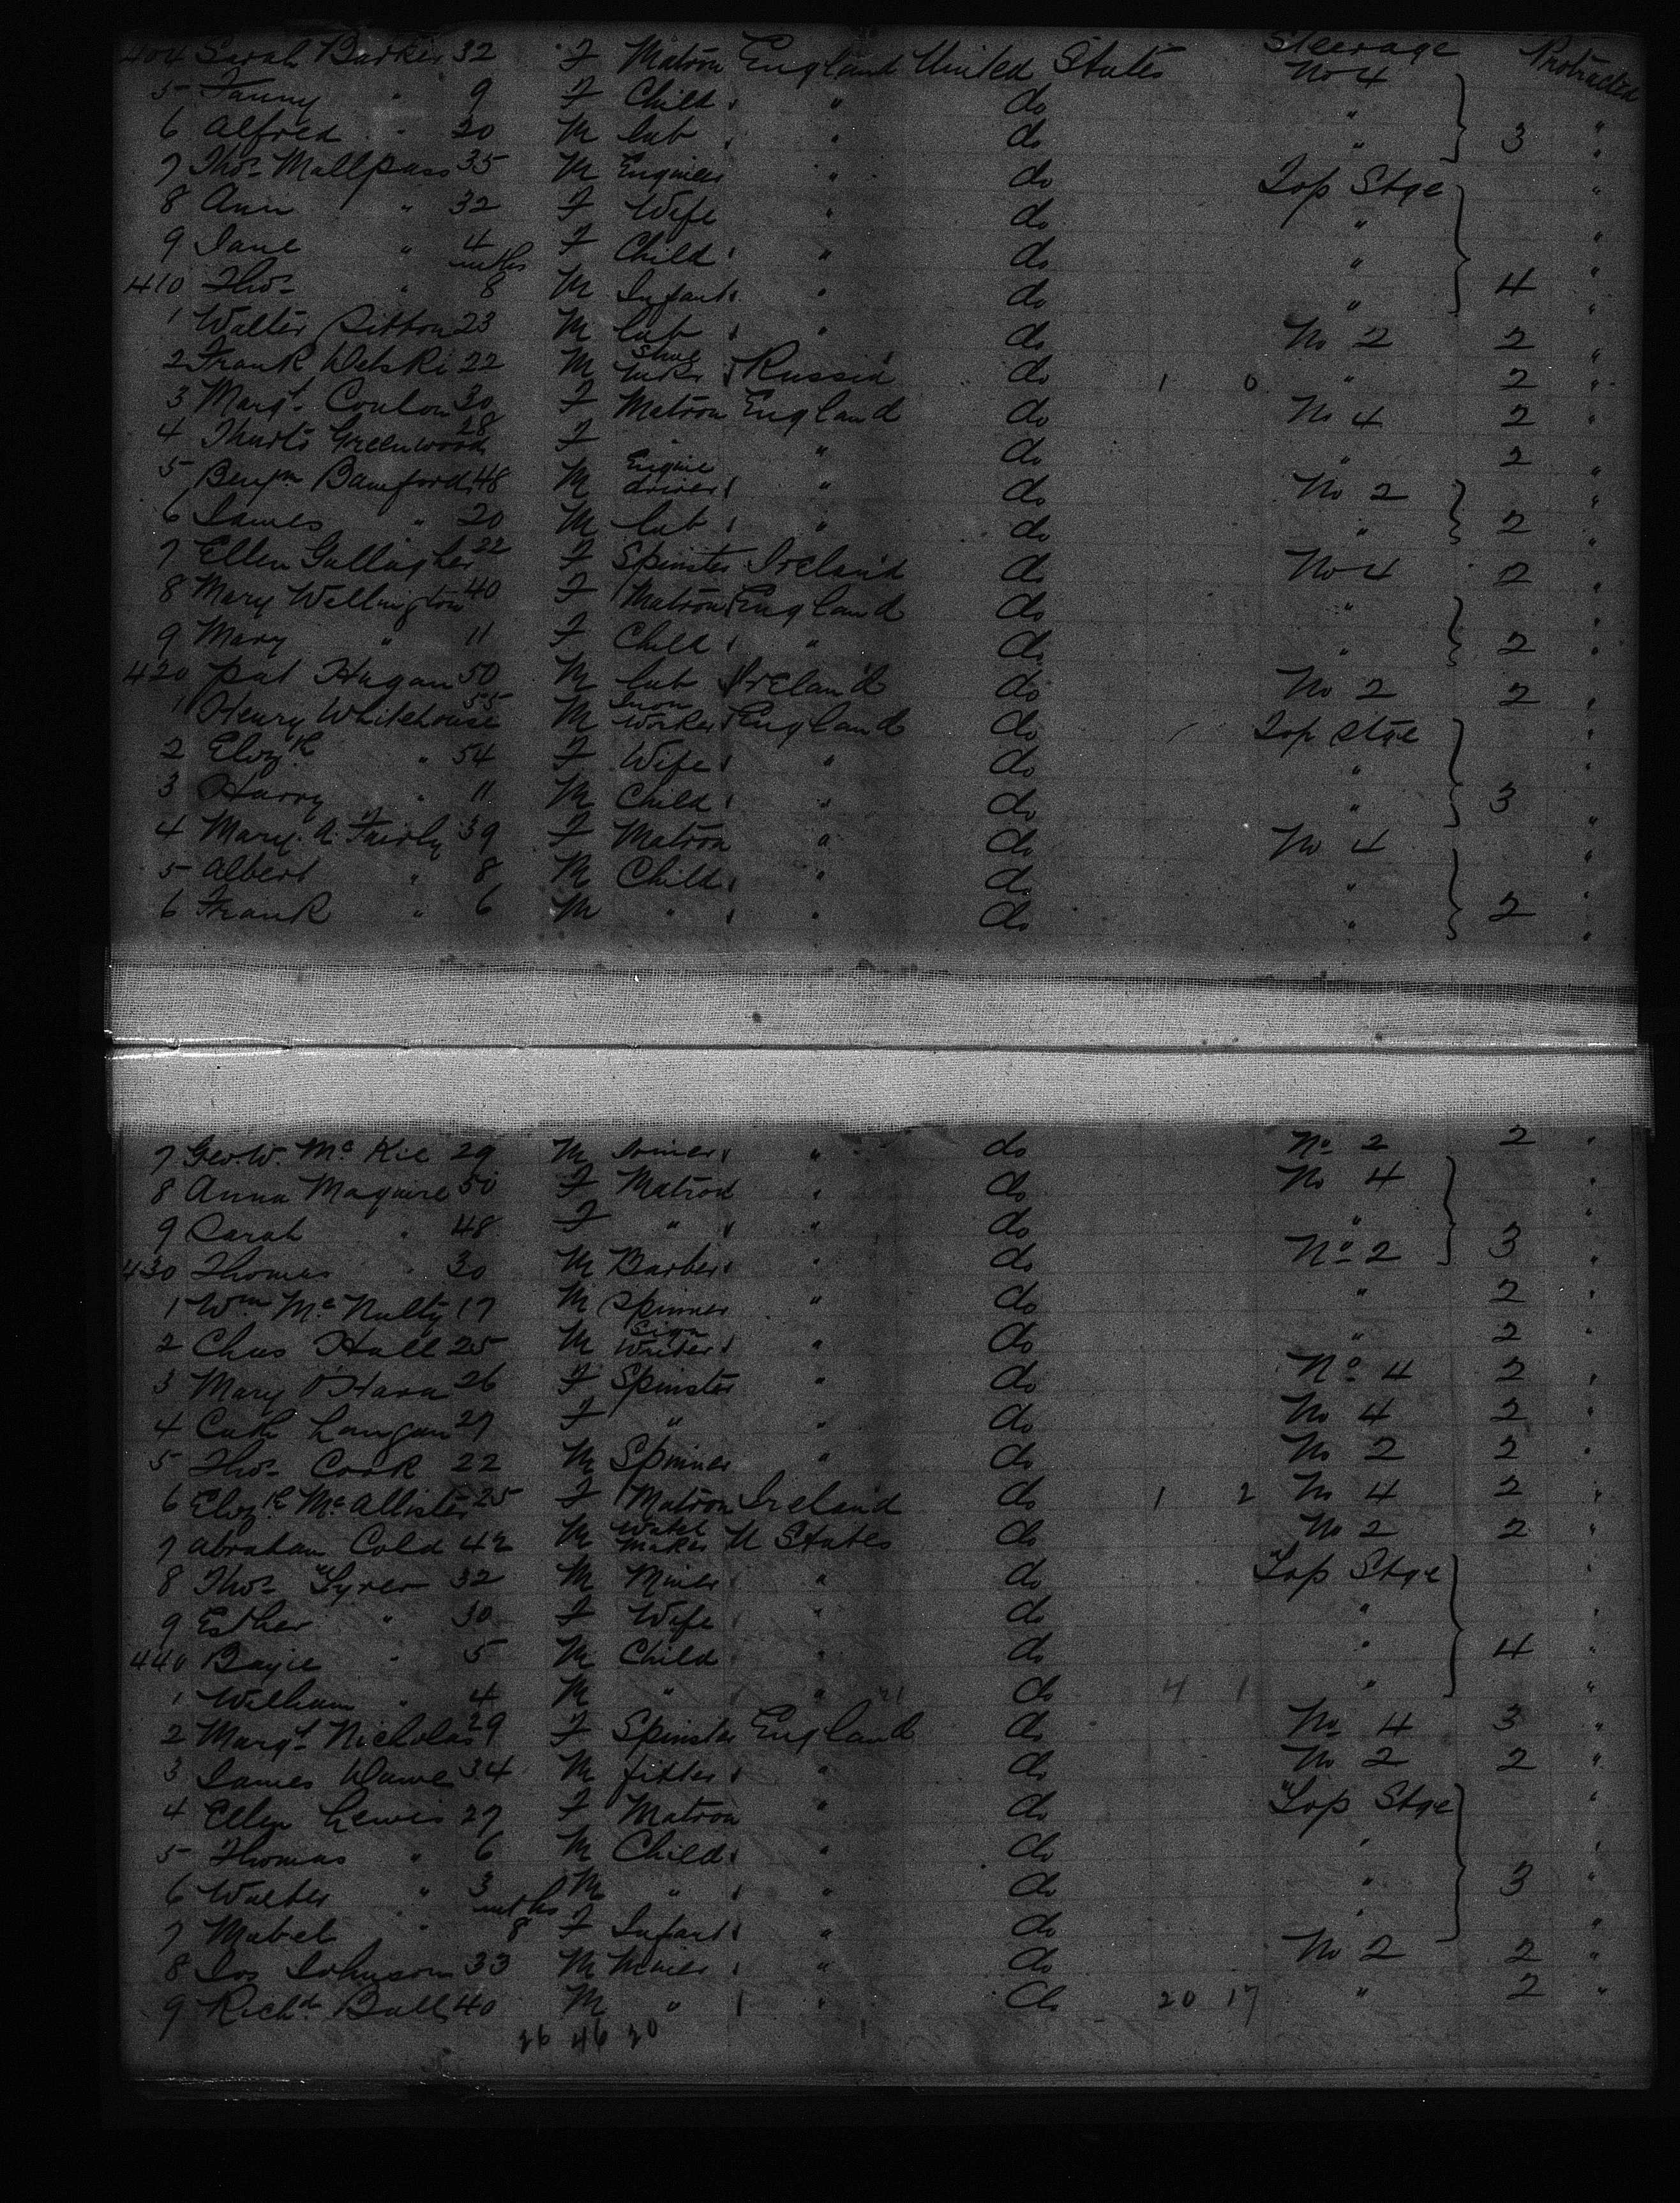 404 Sarah Barker 32 F Matron England United States Steerage No 4 Protracted
5 Fanny " 9 F Child " do "
6 Alfred " 20 M lab " do " 3 "
7 Thos. Mallpass 35 M Engineer " do Top Stge "
8 Ann " 32 F Wife " do " "
9 Jane " 4 F Child " do " "
410 Thos. " mths 8 M Infant " do " 4 "
1 Walter Sitton 23 M lab " do No 2 2 "
2 Frank 22 M Shoe Russia do 1 0 " 2 "
3 Margt. Conlon 30 F Matron England do No 4 2 "
4 Greenwood 28 F " do " 2 "
5 Benjm Bamford 48 M Engine driver " do No 2 "
6 James " 20 M lab " do " 2 "
7 Ellen Gallagher 22 F Spinster Ireland do No 4 2 "
8 Mary Wellington 40 F Matron England do " "
9 Mary " 11 F Child " do " 2 "
420 Pat Hagan 50 M lab Ireland do No 2 2 "
1 Henry Whitehouse 55 M Iron Worker England do Top Stge "
2 Elizth " 54 F Wife " do " "
3 Harry " 11 M Child " do " 3 "
4 Mary A. Fairly 39 F Matron " do No 4 "
5 Albert " 8 M Child " do " "
6 Frank " 6 M " " do " 2 "
7 Geo. W. McKie 29 M Joiner " do No 2 2 "
8 Anna Maguire 50 F Matron " do No 4 "
9 Sarah " 48 F " " do " "
430 Thomas " 30 M Barber " do No 2 3 "
1 Wm McNulty 17 M Spinner " do " 2 "
2 Chas Hall 25 M Sign Writer " do " 2 "
3 Mary O'Hara 26 F Spinster " do No 4 2 "
4 Cath Langan 27 F " " do No 4 2 "
5 Thos. Cook 22 M Spinner " do No 2 2 "
6 Elizth McAllister 25 F Matron Ireland do 1 2 No 4 2 "
7 Abraham Cold 42 M Watch Maker U States do No 2 2 "
8 Thos. Tyrer 32 M Miner " do Top Stge "
9 Esther " 30 F Wife " do " "
440 " 5 M Child " do " 4 "
1 William " 4 M " " do 4 1 " "
2 Margt. Nicholas 29 F Spinster England do No 4 3 "
3 James 34 M fitter " do No 2 2 "
4 Ellen Lewis 27 F Matron " do Top Stge "
5 Thomas " 6 M Child " do " "
6 Walter " 3 M " " do " 3 "
7 Mabel " mths 8 F Infant " do " "
8 Jos Johnson 33 M Miner " do No 2 2 "
9 Richd. Ball 40 M " " do 20 17 " 2 "
26 46 20